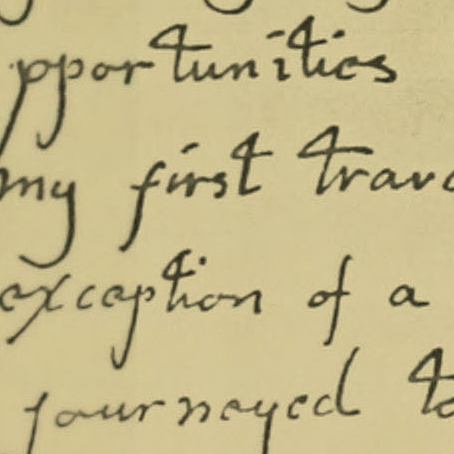 pportunities
my first trav
exception of a
journeyed to